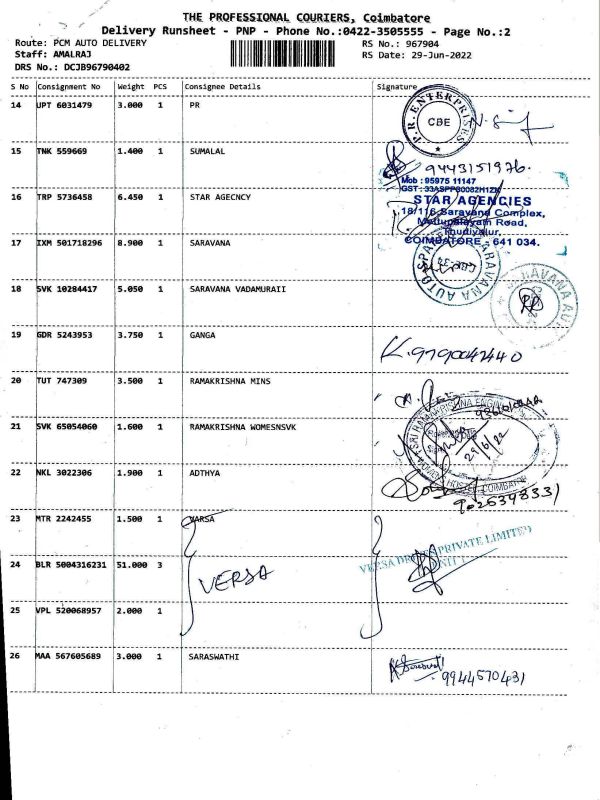 THE PROFESSIONAL COURIERS, Coimbatore
Delivery Runsheet - PNP - Phone No.:0422-3505555 - Page No.:2
Route: PCM AUTO DELIVERY RS No.: 967904
Staff: AMALRAJ RS Date: 29-Jun-2022
DRS No.: DCJB96790402
S No Consignment No Weight PCS Consignee Details Signature
14 UPT 6031479 3.000 1 PR
P.R. ENTERPRISES
CBE
15 TNK 559669 1.400 1 SUMALAL
9443151976.
Mob : 95975 11147
16 TRP 5736458 6.450 1 STAR AGECNCY
STAR AGENCIES
18/116 Saravana Complex,
Mettupalayam Road,
Thudiyalur,
COIMBATORE - 641 034.
17 IXM 501718296 8.900 1 SARAVANA
SARAVANA AUTO SPA
18 SVK 10284417 5.050 1 SARAVANA VADAMURAII
19 GDR 5243953 3.750 1 GANGA
20 TUT 747309 3.500 1 RAMAKRISHNA MINS
21 SVK 65054060 1.600 1 RAMAKRISHNA WOMESNSVK
SRI RAMAKRISHNA
29/6/22
COIMBATORE
22 NKL 3022306 1.900 1 ADTHYA
9025398331
23 MTR 2242455 1.500 1 VARSA
24 BLR 5004316231 51.000 3
VERSA
PRIVATE LIMITED
25 VPL 520068957 2.000 1
26 MAA 567605689 3.000 1 SARASWATHI
9944570431